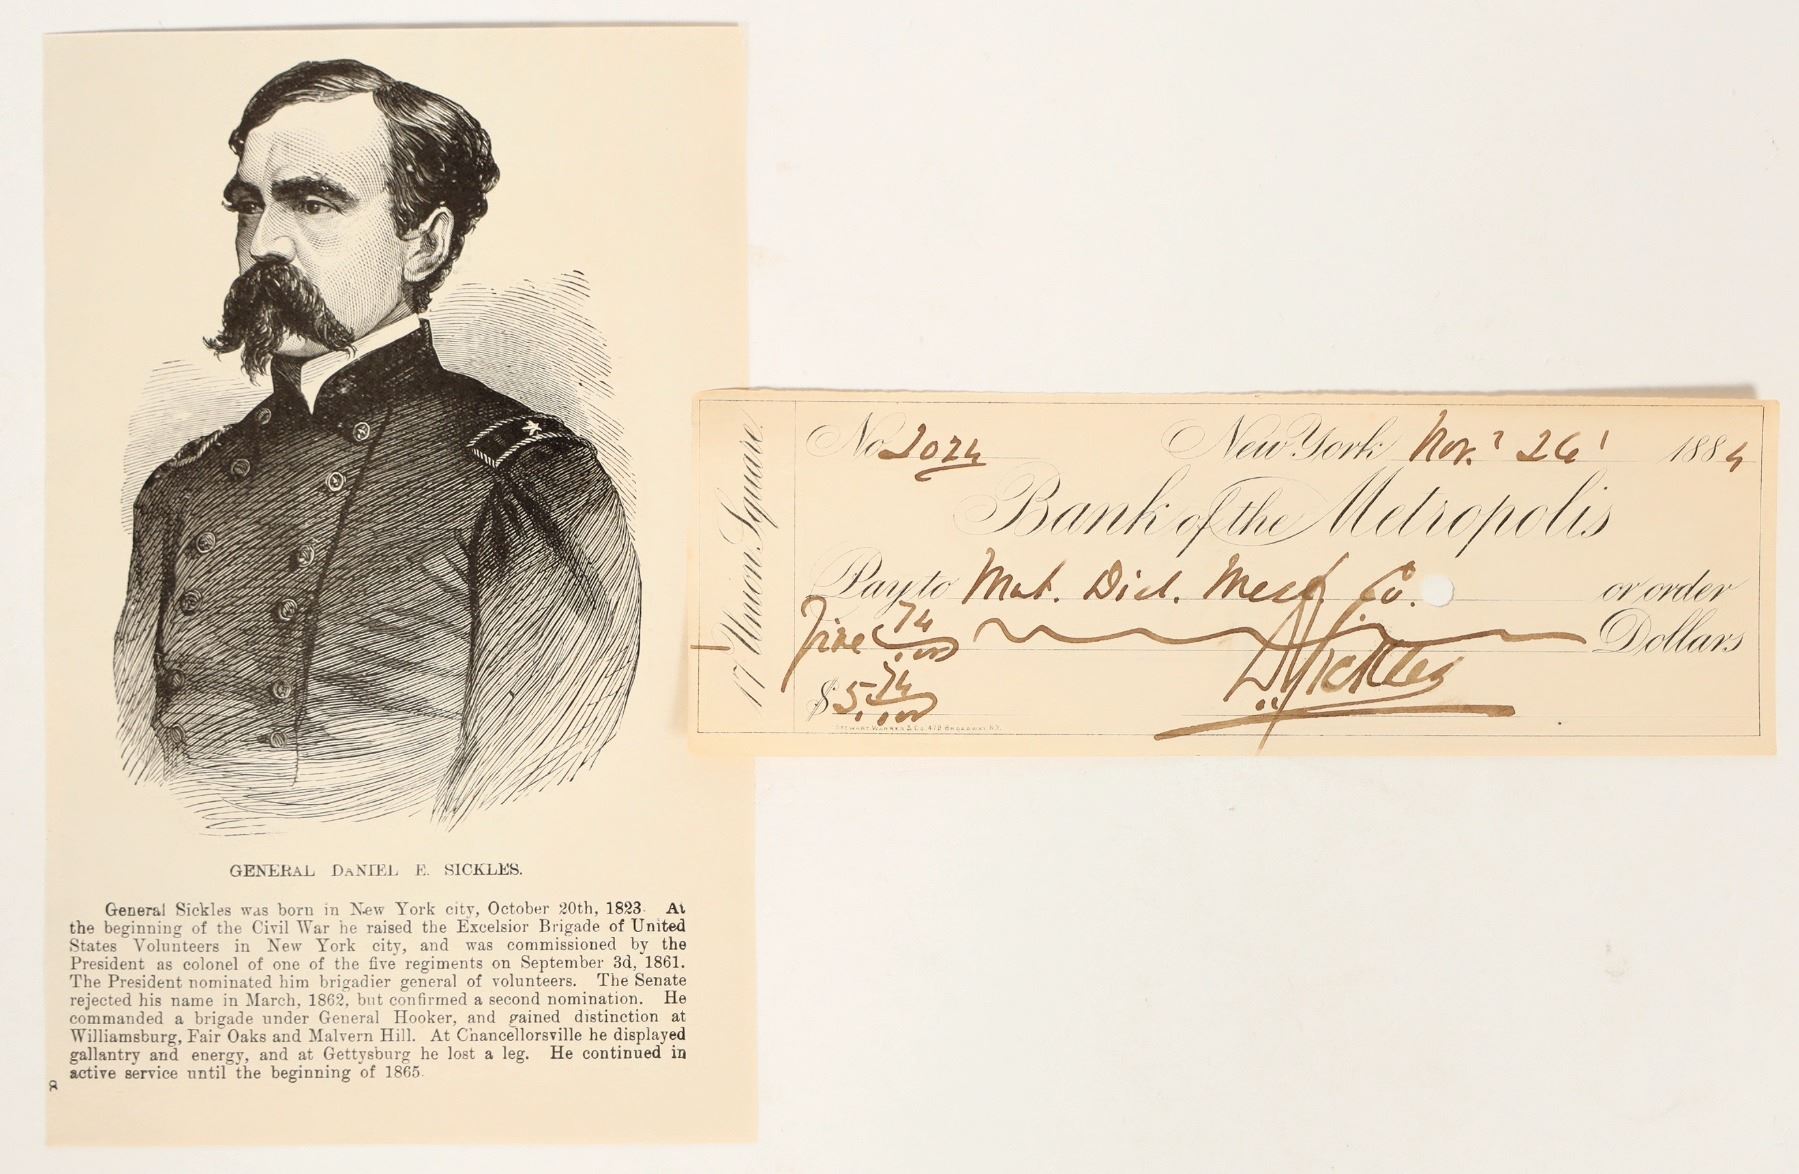 GENERAL DANIEL E. SICKLES.
General Sickles was born in New York city, October 20th, 1823. At
the beginning of the Civil War he raised the Excelsior Brigade of United
States Volunteers in New York city, and was commissioned by the
President as colonel of one of the five regiments on September 3d, 1861.
The President nominated him brigadier general of volunteers. The Senate
rejected his name in March, 1862, but confirmed a second nomination. He
commanded a brigade under General Hooker, and gained distinction at
Williamsburg, Fair Oaks and Malvern Hill. At Chancellorsville he displayed
gallantry and energy, and at Gettysburg he lost a leg. He continued in
active service until the beginning of 1865.
8
17 Union Square.
No 2074 New York Nov. 26 1884
Bank of the Metropolis
Pay to Mut. Dist. Mess. Co. or order
Five 74/100 Dollars
$5.74/100 D Sickles
STEWART WARREN & CO. 479 BROADWAY N.Y.